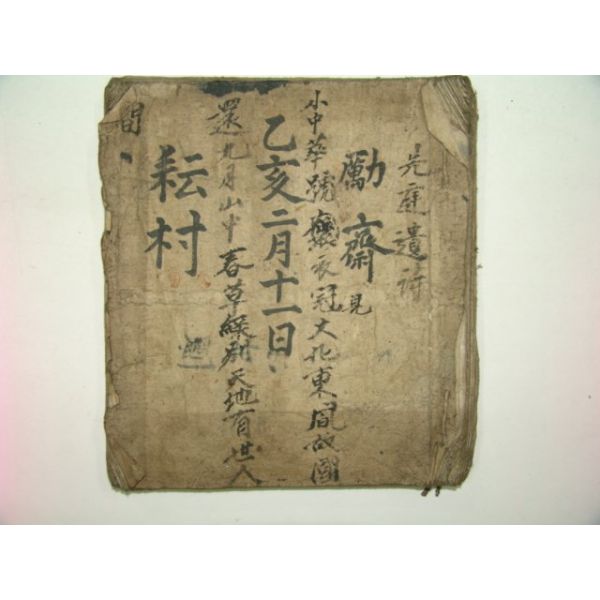 先庭遺詩
勵齋見
小中華號 衣冠大 東 故國
乙亥二月十一日
還九月山中春草綠 天地有世人
耘村
間